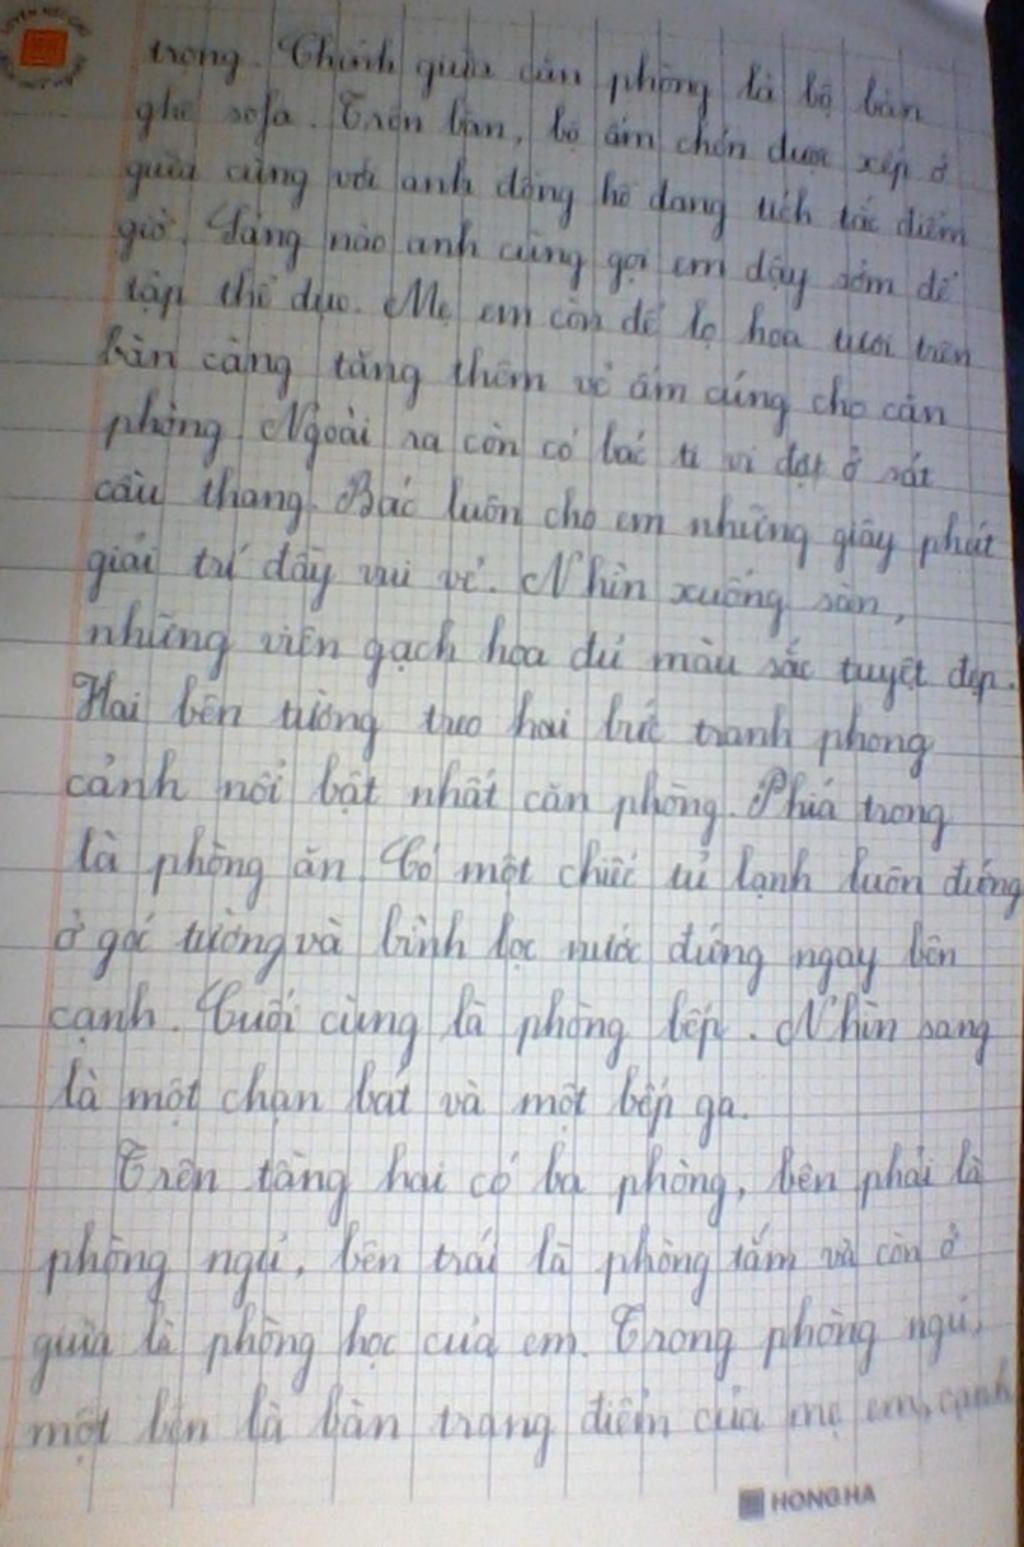 trong. Chính giữa căn phòng là bộ bàn
ghế sofa. Trên bàn, bộ ấm chén được xếp ở
giữa cùng với anh đồng hồ đang tích tắc điểm
giờ. Sáng nào anh cũng gọi em dậy sớm để
tập thể dục. Mẹ em còn để lọ hoa tươi trên
bàn càng tăng thêm vẻ ấm cúng cho căn
phòng. Ngoài ra còn có bác ti vi đặt ở sát
cầu thang. Bác luôn cho em những giây phút
giải trí đầy vui vẻ. Nhìn xuống sàn,
những viên gạch hoa đủ màu sắc tuyệt đẹp.
Hai bên tường treo hai bức tranh phong
cảnh nổi bật nhất căn phòng. Phía trong
là phòng ăn. Có một chiếc tủ lạnh luôn đứng
ở góc tường và bình lọc nước đứng ngay bên
cạnh. Cuối cùng là phòng bếp. Nhìn sang
là một chạn bát và một bếp ga.
Trên tầng hai có ba phòng, bên phải là
phòng ngủ, bên trái là phòng tắm và còn ở
giữa là phòng học của em. Trong phòng ngủ,
một bên là bàn trang điểm của mẹ em, cạnh
HONG HA